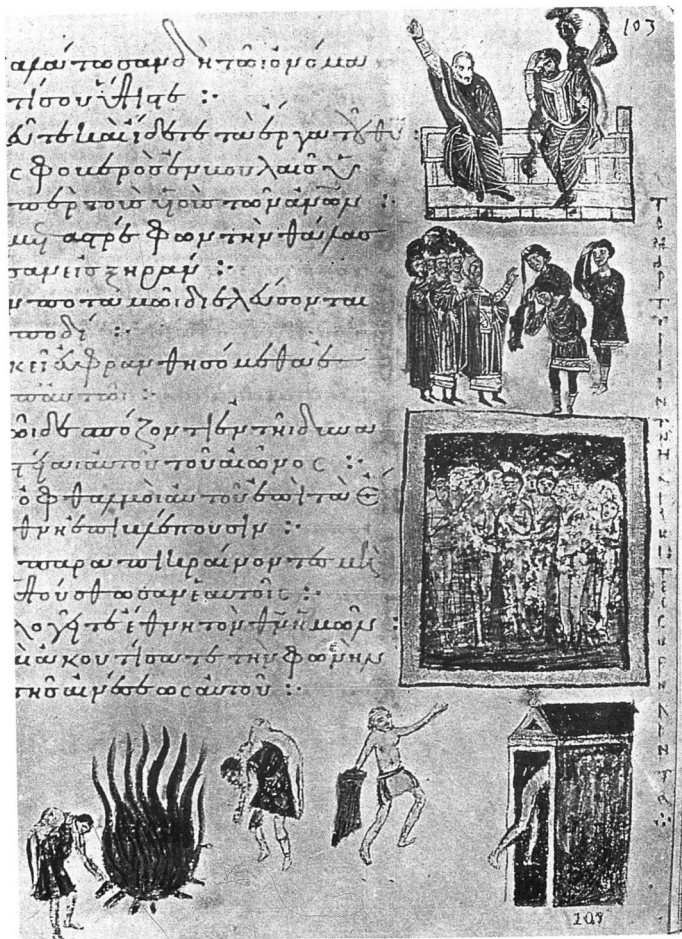 103
αλάτωσαν δὴ τῶι ὀνόμα
τί σου ὕψιστε :
εῦτε καὶ ἴδετε τὰ ἔργα τοῦ θῦ :
ς φοβερὸς ἐν βουλαῖς ὑ
πὲρ τοὺς υἱοὺς τῶν ἀνῶν :
με αστρέφων τὴν θάλασ
σαν εἰς ξηράν :
ν ποταμῶι διελεύσονται
ποδί :
κεῖ εὐφρανθησόμεθα ἐ
π αὐτῶι :
ῶι δεσπόζοντι ἐν τῆι δυνα
τείαι αὐτοῦ τοῦ αἰῶνος :
ὀφθαλμοὶ αὐτοῦ ἐπὶ τὰ ἔ
θνη ἐπιβλέπουσιν :
παραπικραίνοντες μὴ
ὑψούσθωσαν ἐν ἑαυτοῖς :
λογεῖτε ἔθνη τὸν θν ἡμῶν :
ὶ ἀκουτίσατε τὴν φωνὴν
τῆς αἰνέσεως αὐτοῦ :
ΤΟ ΜΑΡΤΥΡΙΟΝ ΤΩΝ ΑΓΙΩΝ